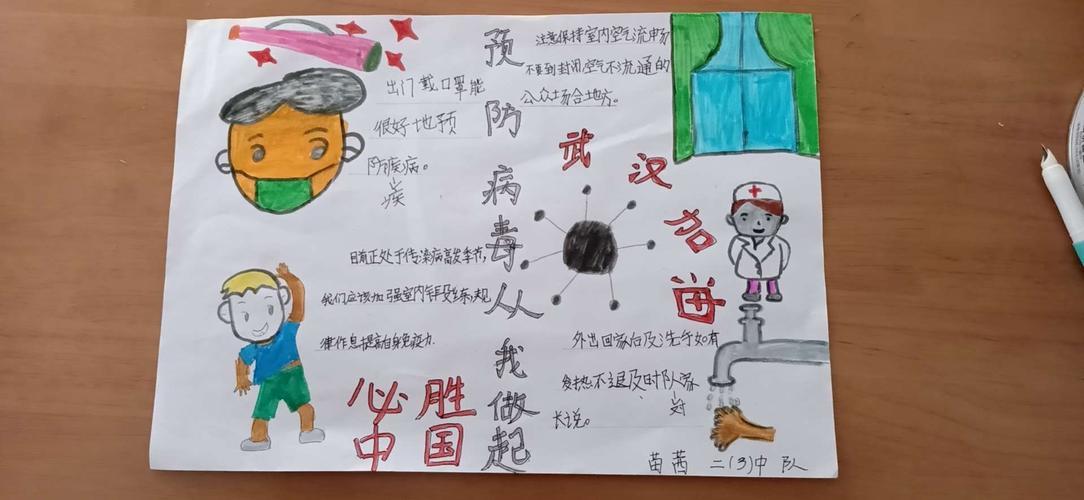 预防病毒从我做起
出门戴口罩能
很好地预
防疾病。
注意保持室内空气流畅
不要到封闭空气不流通的
公众场合地方。
武汉加油
目前正处于传染病高发季节,
我们应该加强室内锻炼,规
律作息提高自身免疫力.
外出回家后及洗手如有
发热不退及时队家
对
长说。
必胜
中国
苗茜 二(3)中队